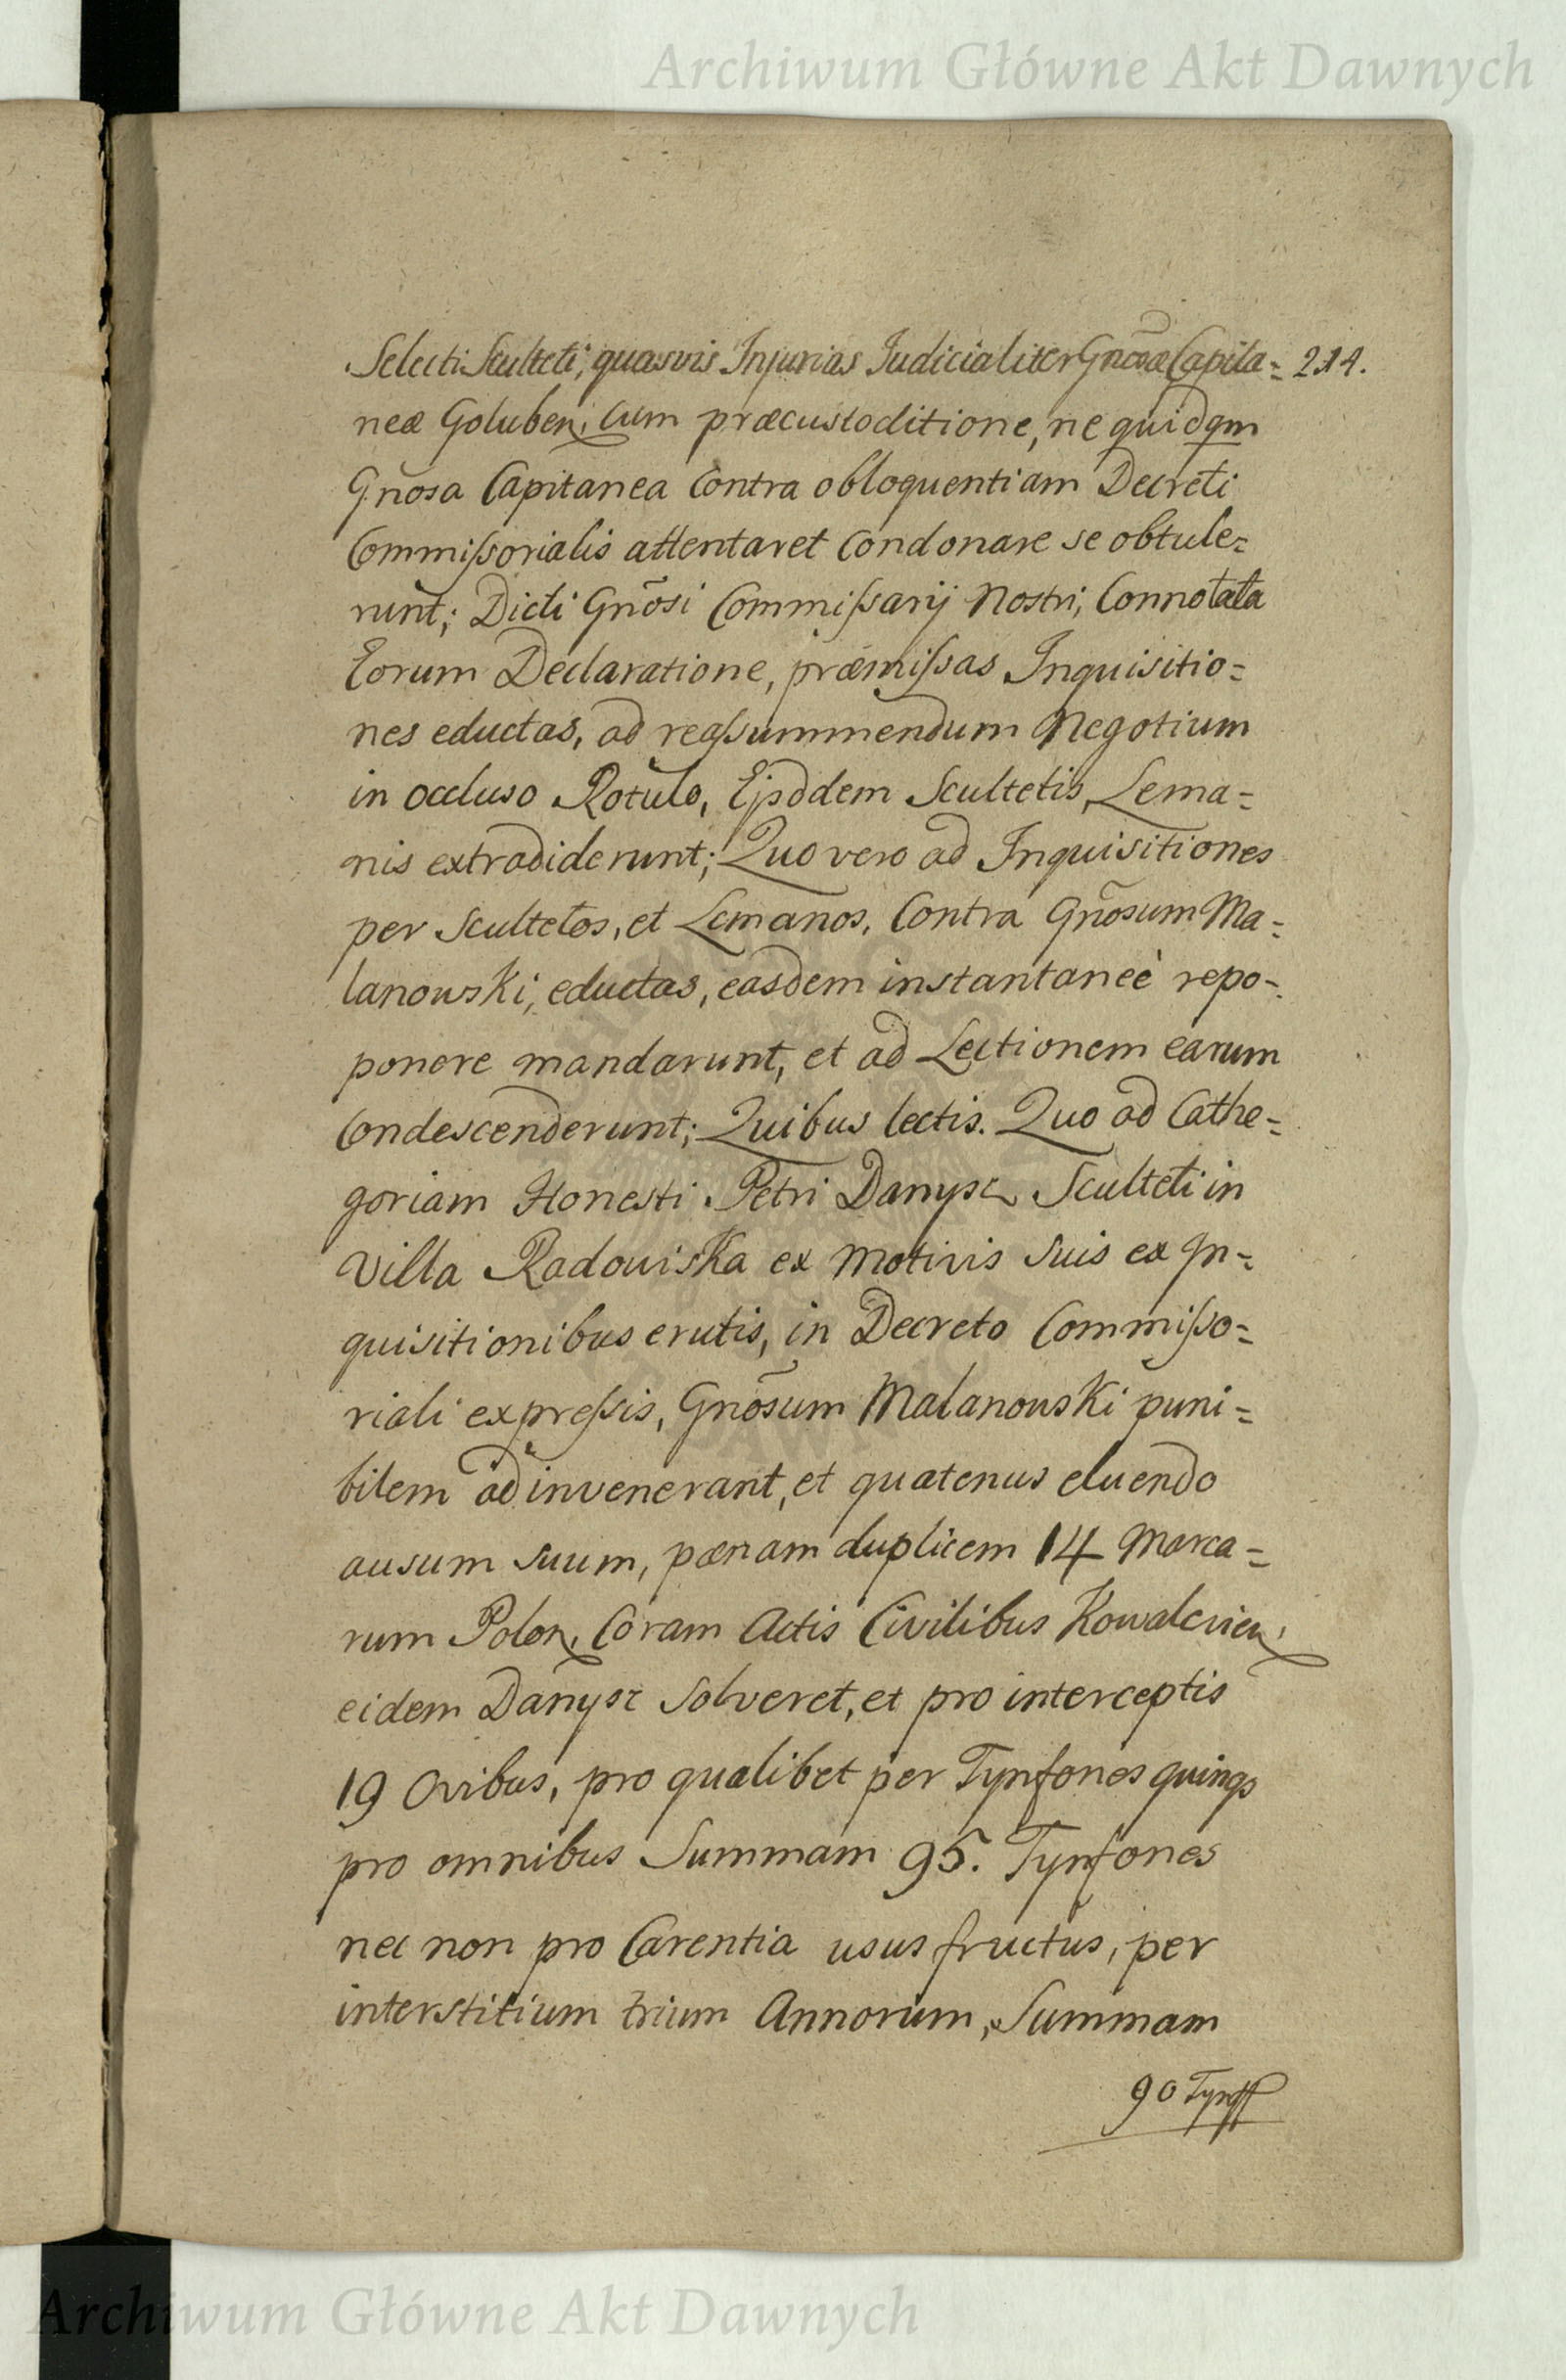 Archiwum Główne Akt Dawnych
Selecti Sculteti, quasvis Injurias Judicialiter Gnosæ Capita= 214.
neæ Goluben, Cum præcustoditione, ne quidqm
Gnõsa Capitanea Contra obloquentiam Decreti
Commiſsorialis attentaret Condonare se obtule=
runt; Dicti Gnõsi Commiſsarij Nostri, Connotata
Eorum Declaratione, præmiſsas Inquisitio=
nes eductas, ad reaſsummendum Negotium
in occluso Rotulo, Ejsddem Scultetis, Lema=
nis extradiderunt; Quo vero ad Inquisitiones
per Scultetos, et Lemanos, Contra Gnõsum Ma=
lanowski, eductas, easdem instantaneè repo=
ponere mandarunt, et ad Lectionem earum
Condescenderunt; Quibus lectis. Quo ad Cathe=
goriam Honesti Petri Danysz Sculteti in
Villa Radowiska ex Motivis Suis ex In=
quisitionibus erutis, in Decreto Commiſso=
riali expreſsis, Gnõsum Malanowski puni=
bilem adinvenerant, et quatenus eluendo
ausum Suum, pœnam duplicem 14 Marca=
rum Polon, Coram Actis Civilibus Kowalevien,
eidem Danysz Solveret, et pro interceptis
19 Ovibus, pro qualibet per Tynfones quinqs
pro omnibus Summam 95. Tynfones
nec non pro Carentia usus fructus, per
interstitium trium Annorum, Summam
90 Tynff
Archiwum Główne Akt Dawnych